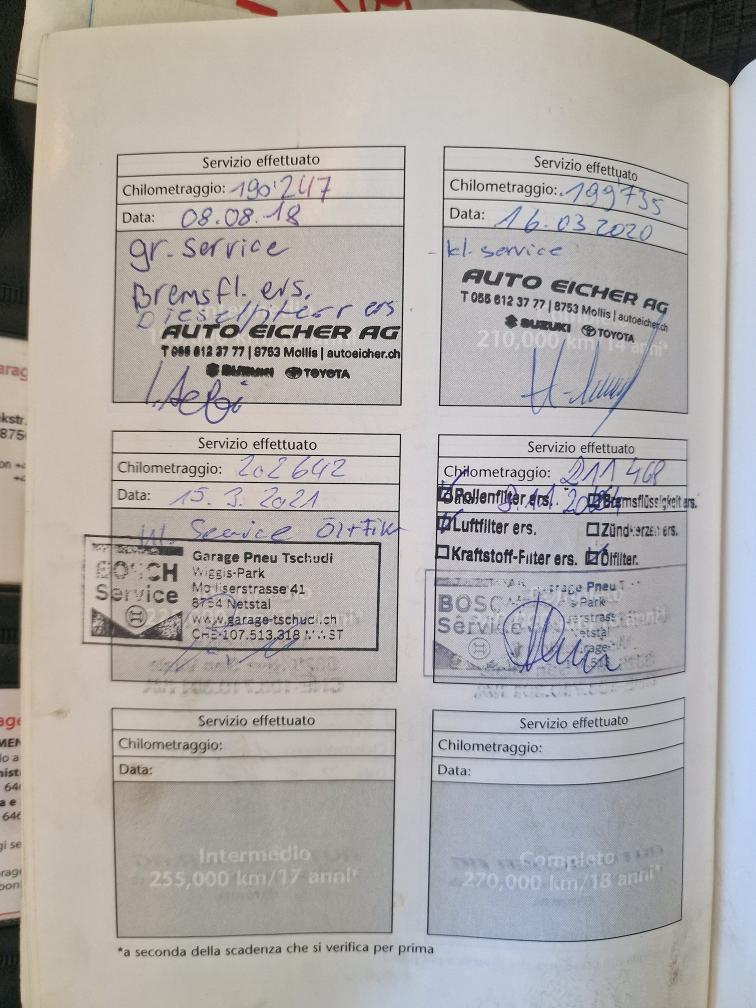 Servizio effettuato
Chilometraggio: 190'247
Data: 08.08.18
gr. Service
Bremsfl. ers.
ers
AUTO EICHER AG
T 055 612 37 77 | 8753 Mollis | autoeicher.ch
SUZUKI TOYOTA
Servizio effettuato
Chilometraggio: 199735
Data: 16.03.2020
kl. service
AUTO EICHER AG
T 055 612 37 77 | 8753 Mollis | autoeicher.ch
SUZUKI TOYOTA
210,000 km/14 anni*
Servizio effettuato
Chilometraggio: 202642
Data: 15.3.2021
kl. Service Öl+Filter
BOSCH
Service
Garage Pneu Tschudi
Wiggis-Park
Molliserstrasse 41
8754 Netstal
www.garage-tschudi.ch
CHE-107.513.318 MWST
Servizio effettuato
Chilometraggio: 211468
Data:
Pollenfilter ers. Bremsflüssigkeit ers.
Luftfilter ers. Zündkerzen ers.
Kraftstoff-Filter ers. Ölfilter.
BOSCH
Service
Garage Pneu
-Park
Netstal
Servizio effettuato
Chilometraggio:
Data:
Intermedio
255,000 km/17 anni*
Servizio effettuato
Chilometraggio:
Data:
Completo
270,000 km/18 anni*
*a seconda della scadenza che si verifica per prima